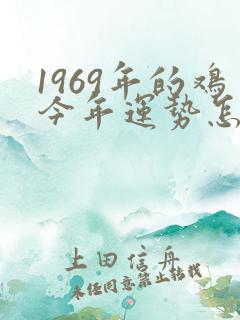 1969年的鸡
今年运势怎
上田信舟
未经同意禁止转载